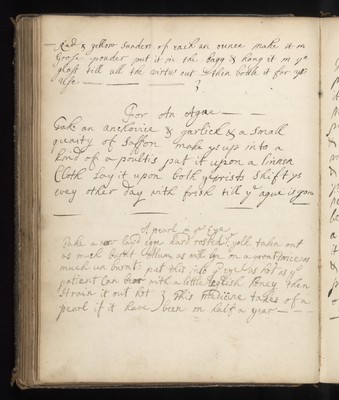 Red & yellow Sanders of each an ounce make it in
Grose pouder put it in the bagg & hang it in ye
glass till all the virtue out then bottle it for yr
Use
For An Ague
Take an anchovie & garlick & a small
quanity of Saffon make ys up into a
kind of a poultis put it upon a linnen
Cloth lay it upon both ye rists shift ys
evey other day with frish till ye ague is gon
A pearl in ye Eye
Take a new laid egg hard rosted ye yolk taken out
as much burnt Allum as will on a groat twice as
much un burnt put this into ye egg as hot as ye
patient Can bear with a little English honey then
strain it out hot & this medicine takes of a
pearl if it have been on half a year